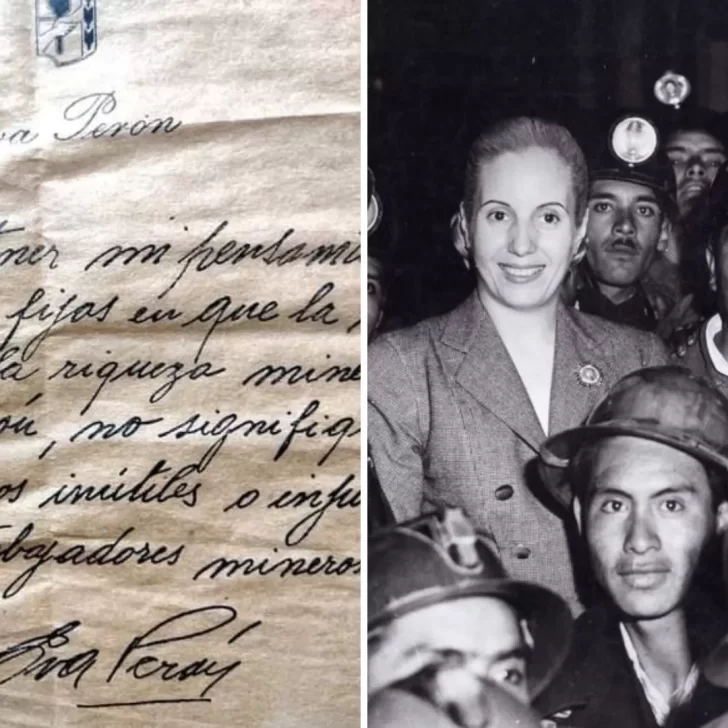 va Perón
ner mi pensami
fijos en que la
la riqueza mine
ón, no signifiq
os inútiles o inju
abajadores mineros
Eva Perón